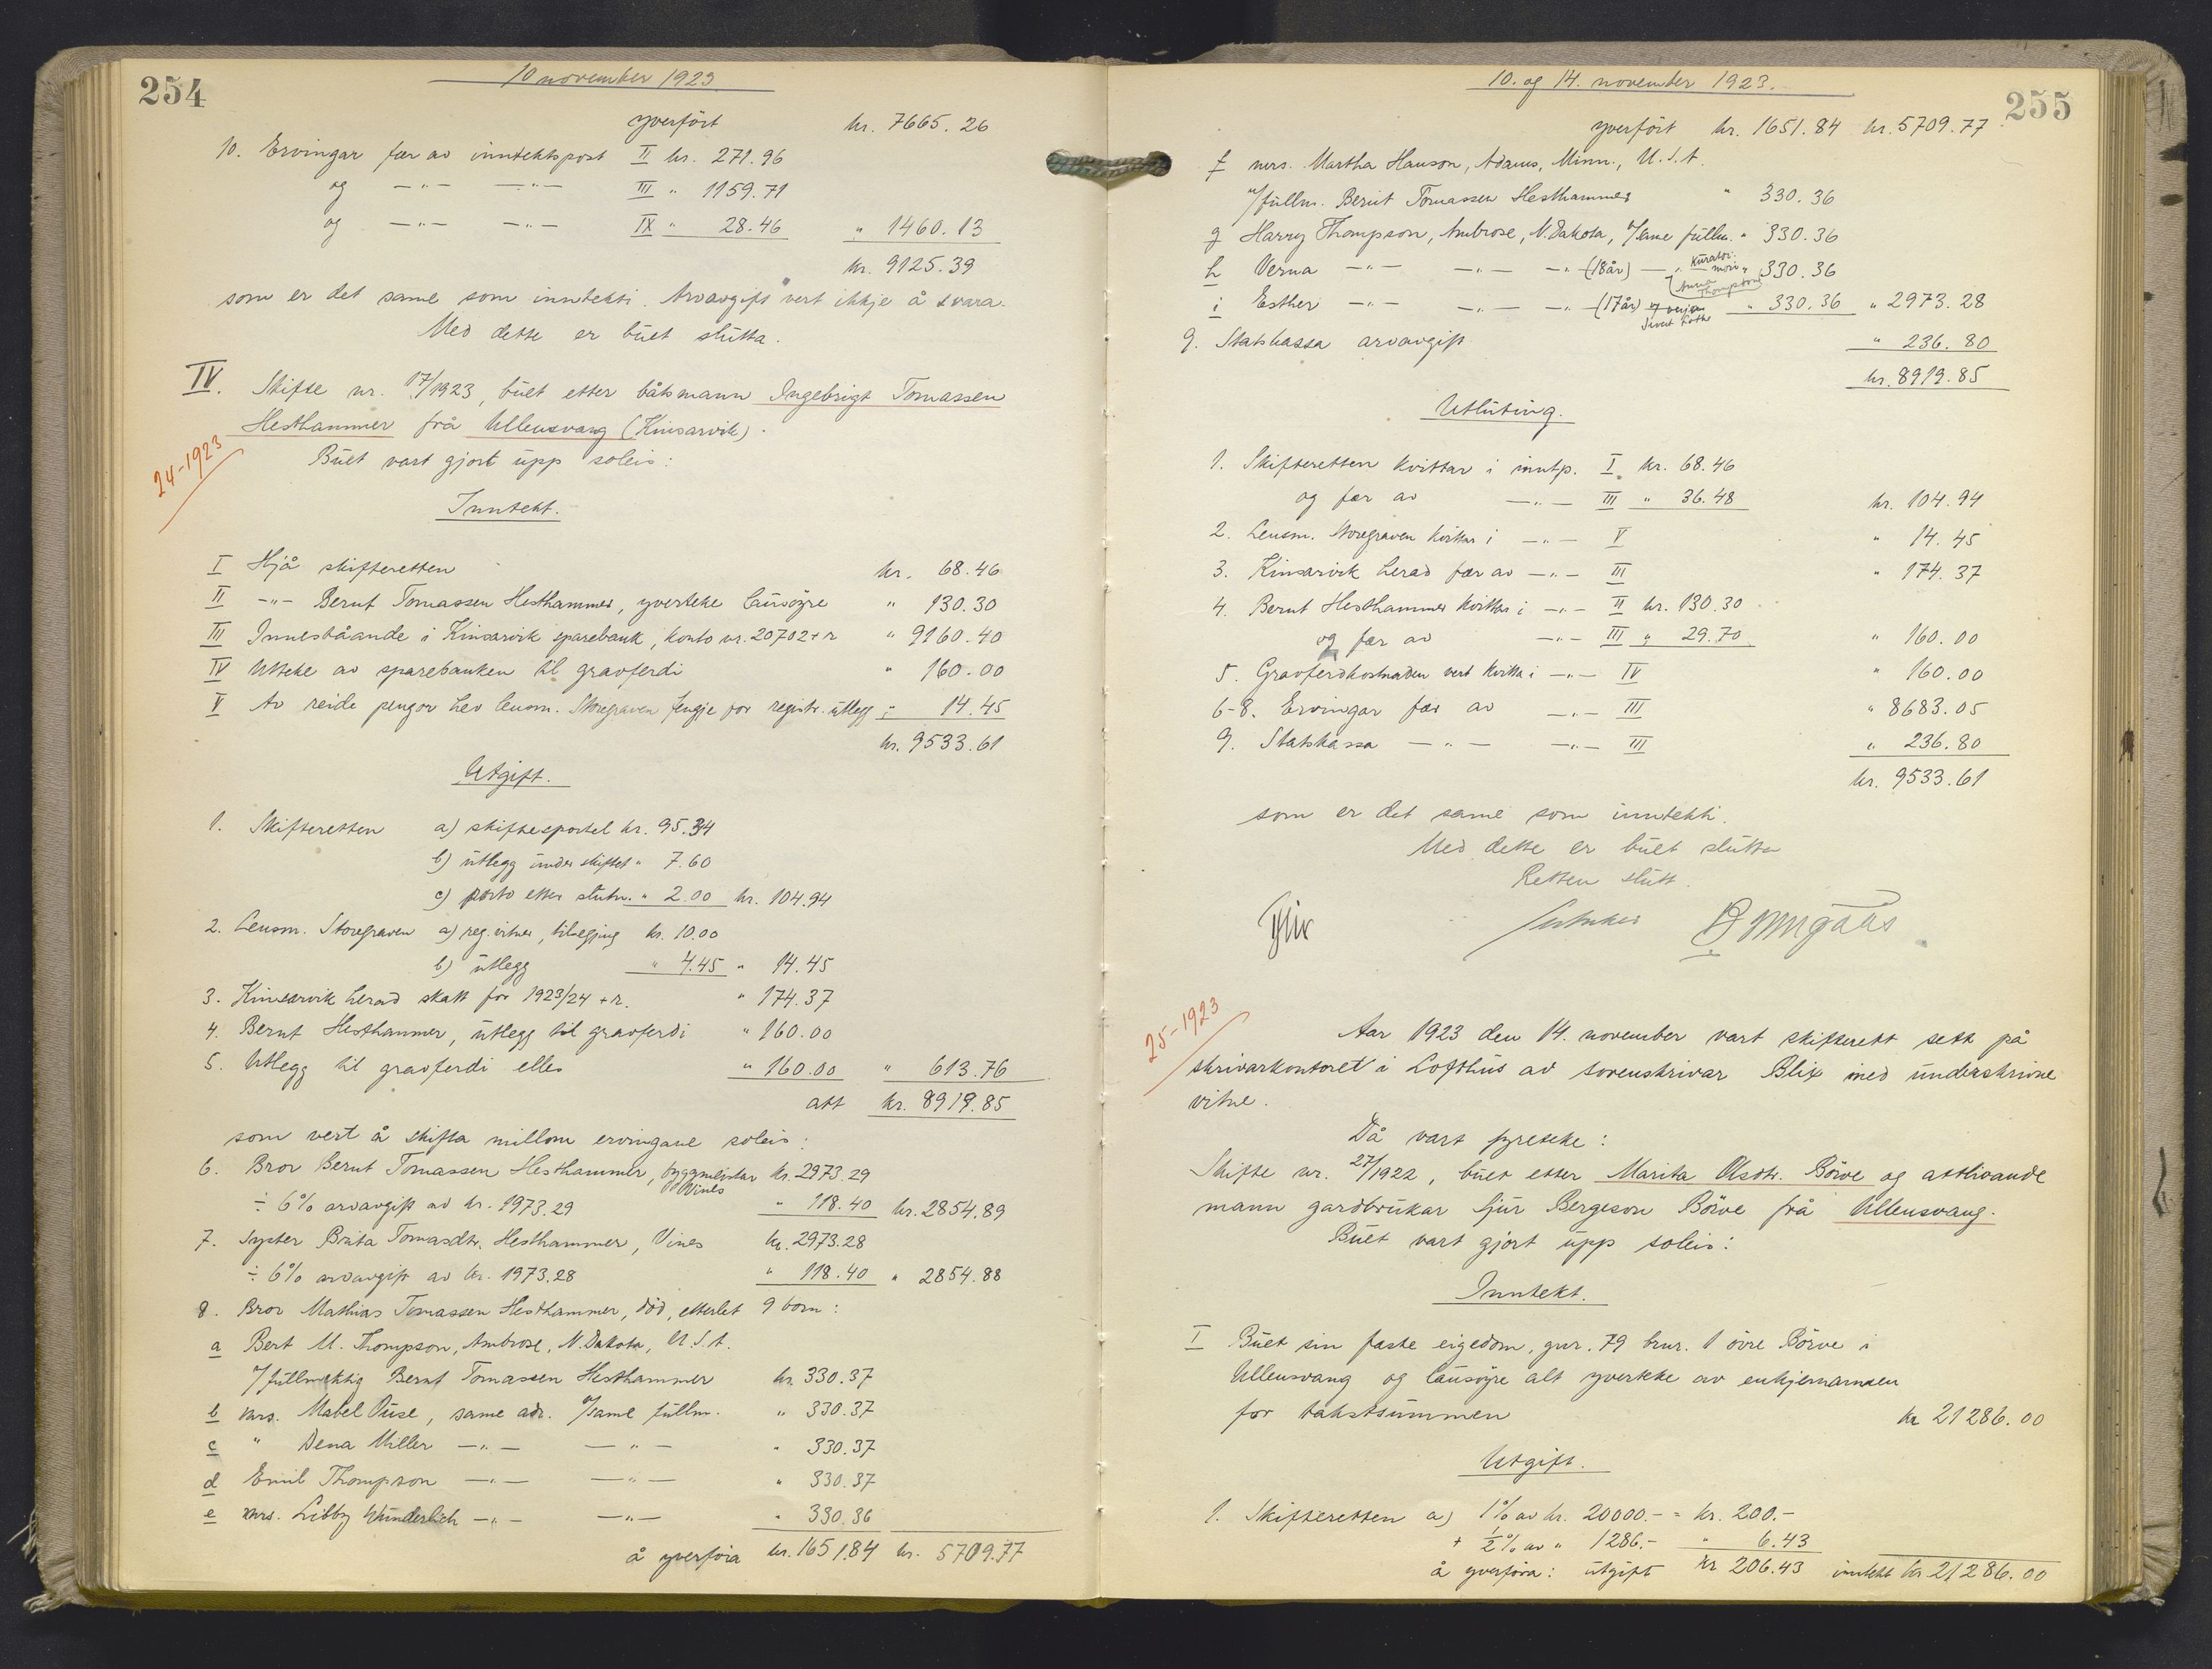 254
10 november 1923
yverfört kr. 7665.26
10. Ervingar fær av inntektspost II kr. 271.96
og —"— —"— III " 1159.71
og —"— —"— IX " 28.46 " 1460.13
kr. 9125.39
som er det same som inntekti. Arvavgift vert ikkje å svara.
Med dette er buet slutta.
IV. Skifte nr. 17/1923, buet etter båtsmann Ingebrigt Tomassen
Hesthammer frå Ullensvang (Kinsarvik).
24-1923
Buet vart gjort upp soleis:
Inntekt.
I Hjå skifteretten kr. 68.46
II —"— Bernt Tomassen Hesthammer, yverteke lausøyre " 130.30
III Inneståande i Kinsarvik sparebank, konto nr. 20702 + r " 9160.40
IV Utteke av sparebanken til gravferdi " 160.00
V Av reide pengar hev lensm. Storegraven fengje for registr. utlegg " 14.45
kr. 9533.61
Utgift.
1. Skifteretten a) skiftesportel kr. 95.34
b) utlegg under skiftet " 7.60
c) porto etter slutn. " 2.00 kr. 104.94
2. Lensm. Storegraven a) reg. vitner, tilsegjing kr. 10.00
b) utlegg " 4.45 " 14.45
3. Kinsarvik herad skatt for 1923/24 + r. " 174.37
4. Bernt Hesthammer, utlegg til gravferdi " 160.00
5. Utlegg til gravferdi elles " 160.00 " 613.76
att kr. 8919.85
som vert å skifta millom ervingane soleis:
6. Bror Bernt Tomassen Hesthammer, byggmeistar Vines kr. 2973.29
÷ 6% arvavgift av kr. 1973.29 " 118.40 kr. 2854.89
7. Syster Brita Tomasdtr. Hesthammer, Vines kr. 2973.28
÷ 6% arvavgift av kr. 1973.28 " 118.40 " 2854.88
8. Bror Mathias Tomassen Hesthammer, död, etterlet 9 born:
a Bert M. Thompson, Ambrose, N. Dakota, U.S.A.
v/ fullmektig Bernt Tomassen Hesthammer kr. 330.37
b mrs. Mabel Ouse, same adr. v/ same fullm. " 330.37
c " Dena Miller —"— —"— " 330.37
d Emil Thompson —"— —"— " 330.37
e mrs. Libby Wunderlich —"— —"— " 330.36
å yverföra kr. 1651.84 kr. 5709.77
255
10. og 14. november 1923.
yverfört kr. 1651.84 kr. 5709.77
f mrs. Martha Hanson, Adams, Minn., U.S.A.
v/ fullm. Bernt Tomassen Hesthammer " 330.36
g Harry Thompson, Ambrose, N. Dakota, v/ same fullm. " 330.36
h Verna —"— —"— —"— (18 år) —"— kurator: mori " 330.36
Anna Thompson
i Esther —"— —"— —"— (17 år) og verjen " 330.36 " 2973.28
Sivert
9. Statskassa arvavgift " 236.80
kr. 8919.85
Utluting.
1. Skifteretten kvittar i inntp. I kr. 68.46
og fær av —"— III " 36.48 kr. 104.94
2. Lensm. Storegraven kvittar i —"— V " 14.45
3. Kinsarvik herad fær av —"— III " 174.37
4. Bernt Hesthammer kvittar i —"— II kr. 130.30
og fær av —"— III " 29.70 " 160.00
5. Gravferdkostnaden vert kvitta i —"— IV " 160.00
6-8. Ervingar fær av —"— III " 8683.05
9. Statskassa —"— —"— III " 236.80
kr. 9533.61
som er det same som inntekti.
Med dette er buet slutta
Retten slutt.
25-1923
Aar 1923 den 14. november vart skifterett sett på
skrivarkontoret i Lofthus av sorenskrivar Blix med underskrivne
vitne.
Då vart fyreteke:
Skifte nr. 27/1922, buet etter Marita Olsdtr. Börve og attlivande
mann gardbrukar Sjur Bergeson Börve frå Ullensvang.
Buet vart gjort upp soleis:
Inntekt.
I Buet sin faste eigedom, gnr. 79 brnr. 1 övre Börve i
Ullensvang og lausøyre alt yverteke av enkjemannen
for takstsummen kr 21286.00
Utgift.
1. Skifteretten a) 1% av kr. 20000.- = kr. 200.-
+ ½% av " 1286.- " 6.43
å yverföra: utgift kr 206.43 inntekt kr 21286.00